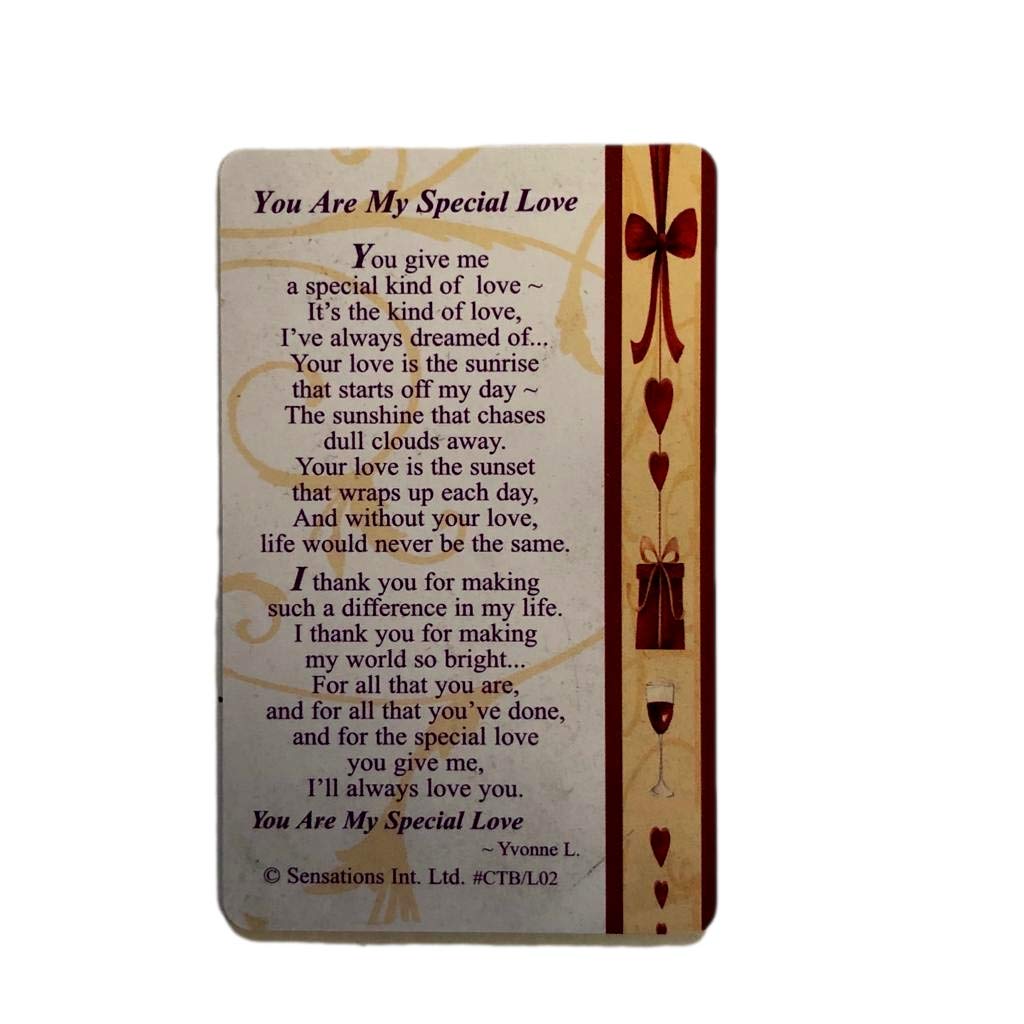 You Are My Special Love
You give me
a special kind of love ~
It's the kind of love,
I've always dreamed of...
Your love is the sunrise
that starts off my day ~
The sunshine that chases
dull clouds away.
Your love is the sunset
that wraps up each day,
And without your love,
life would never be the same.
I thank you for making
such a difference in my life.
I thank you for making
my world so bright...
For all that you are,
and for all that you've done,
and for the special love
you give me,
I'll always love you.
You Are My Special Love
~ Yvonne L.
© Sensations Int. Ltd. #CTB/L02